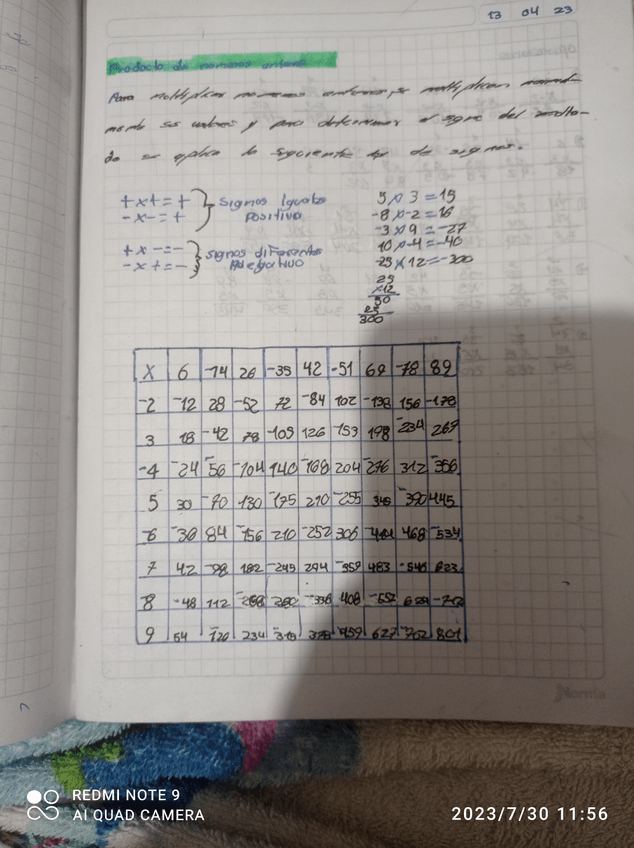 13 04 23
Producto de numeros enteros
Para multiplicar numeros enteros, se multiplican normal-
mente sus valores y para determinar el signo del resulta-
do se aplica la siguiente ley de signos.
+ x + = +
- x - = +
signos Iguales
Positivo
+ x - = -
- x + = -
signos diferentes
Negativo
5 x 3 = 15
-8 x -2 = 16
-3 x 9 = -27
10 x -4 = -40
-25 x 12 = -300
25
x12
50
25
300
X 6 -14 26 -35 42 -51 69 -78 89
-2 -12 28 -52 72 -84 102 -138 156 -178
3 18 -42 78 -105 126 -153 198 -234 267
-4 -24 56 -104 140 -168 204 -276 312 -356
5 30 -70 130 -175 210 -255 345 -390 445
-6 -36 84 -156 210 -252 306 -414 468 -534
7 42 -98 182 -245 294 -357 483 -546 623
-8 -48 112 -208 280 -336 408 -552 624 -712
9 54 -126 234 -315 378 -459 627 -702 801
Norma
REDMI NOTE 9
AI QUAD CAMERA
2023/7/30 11:56